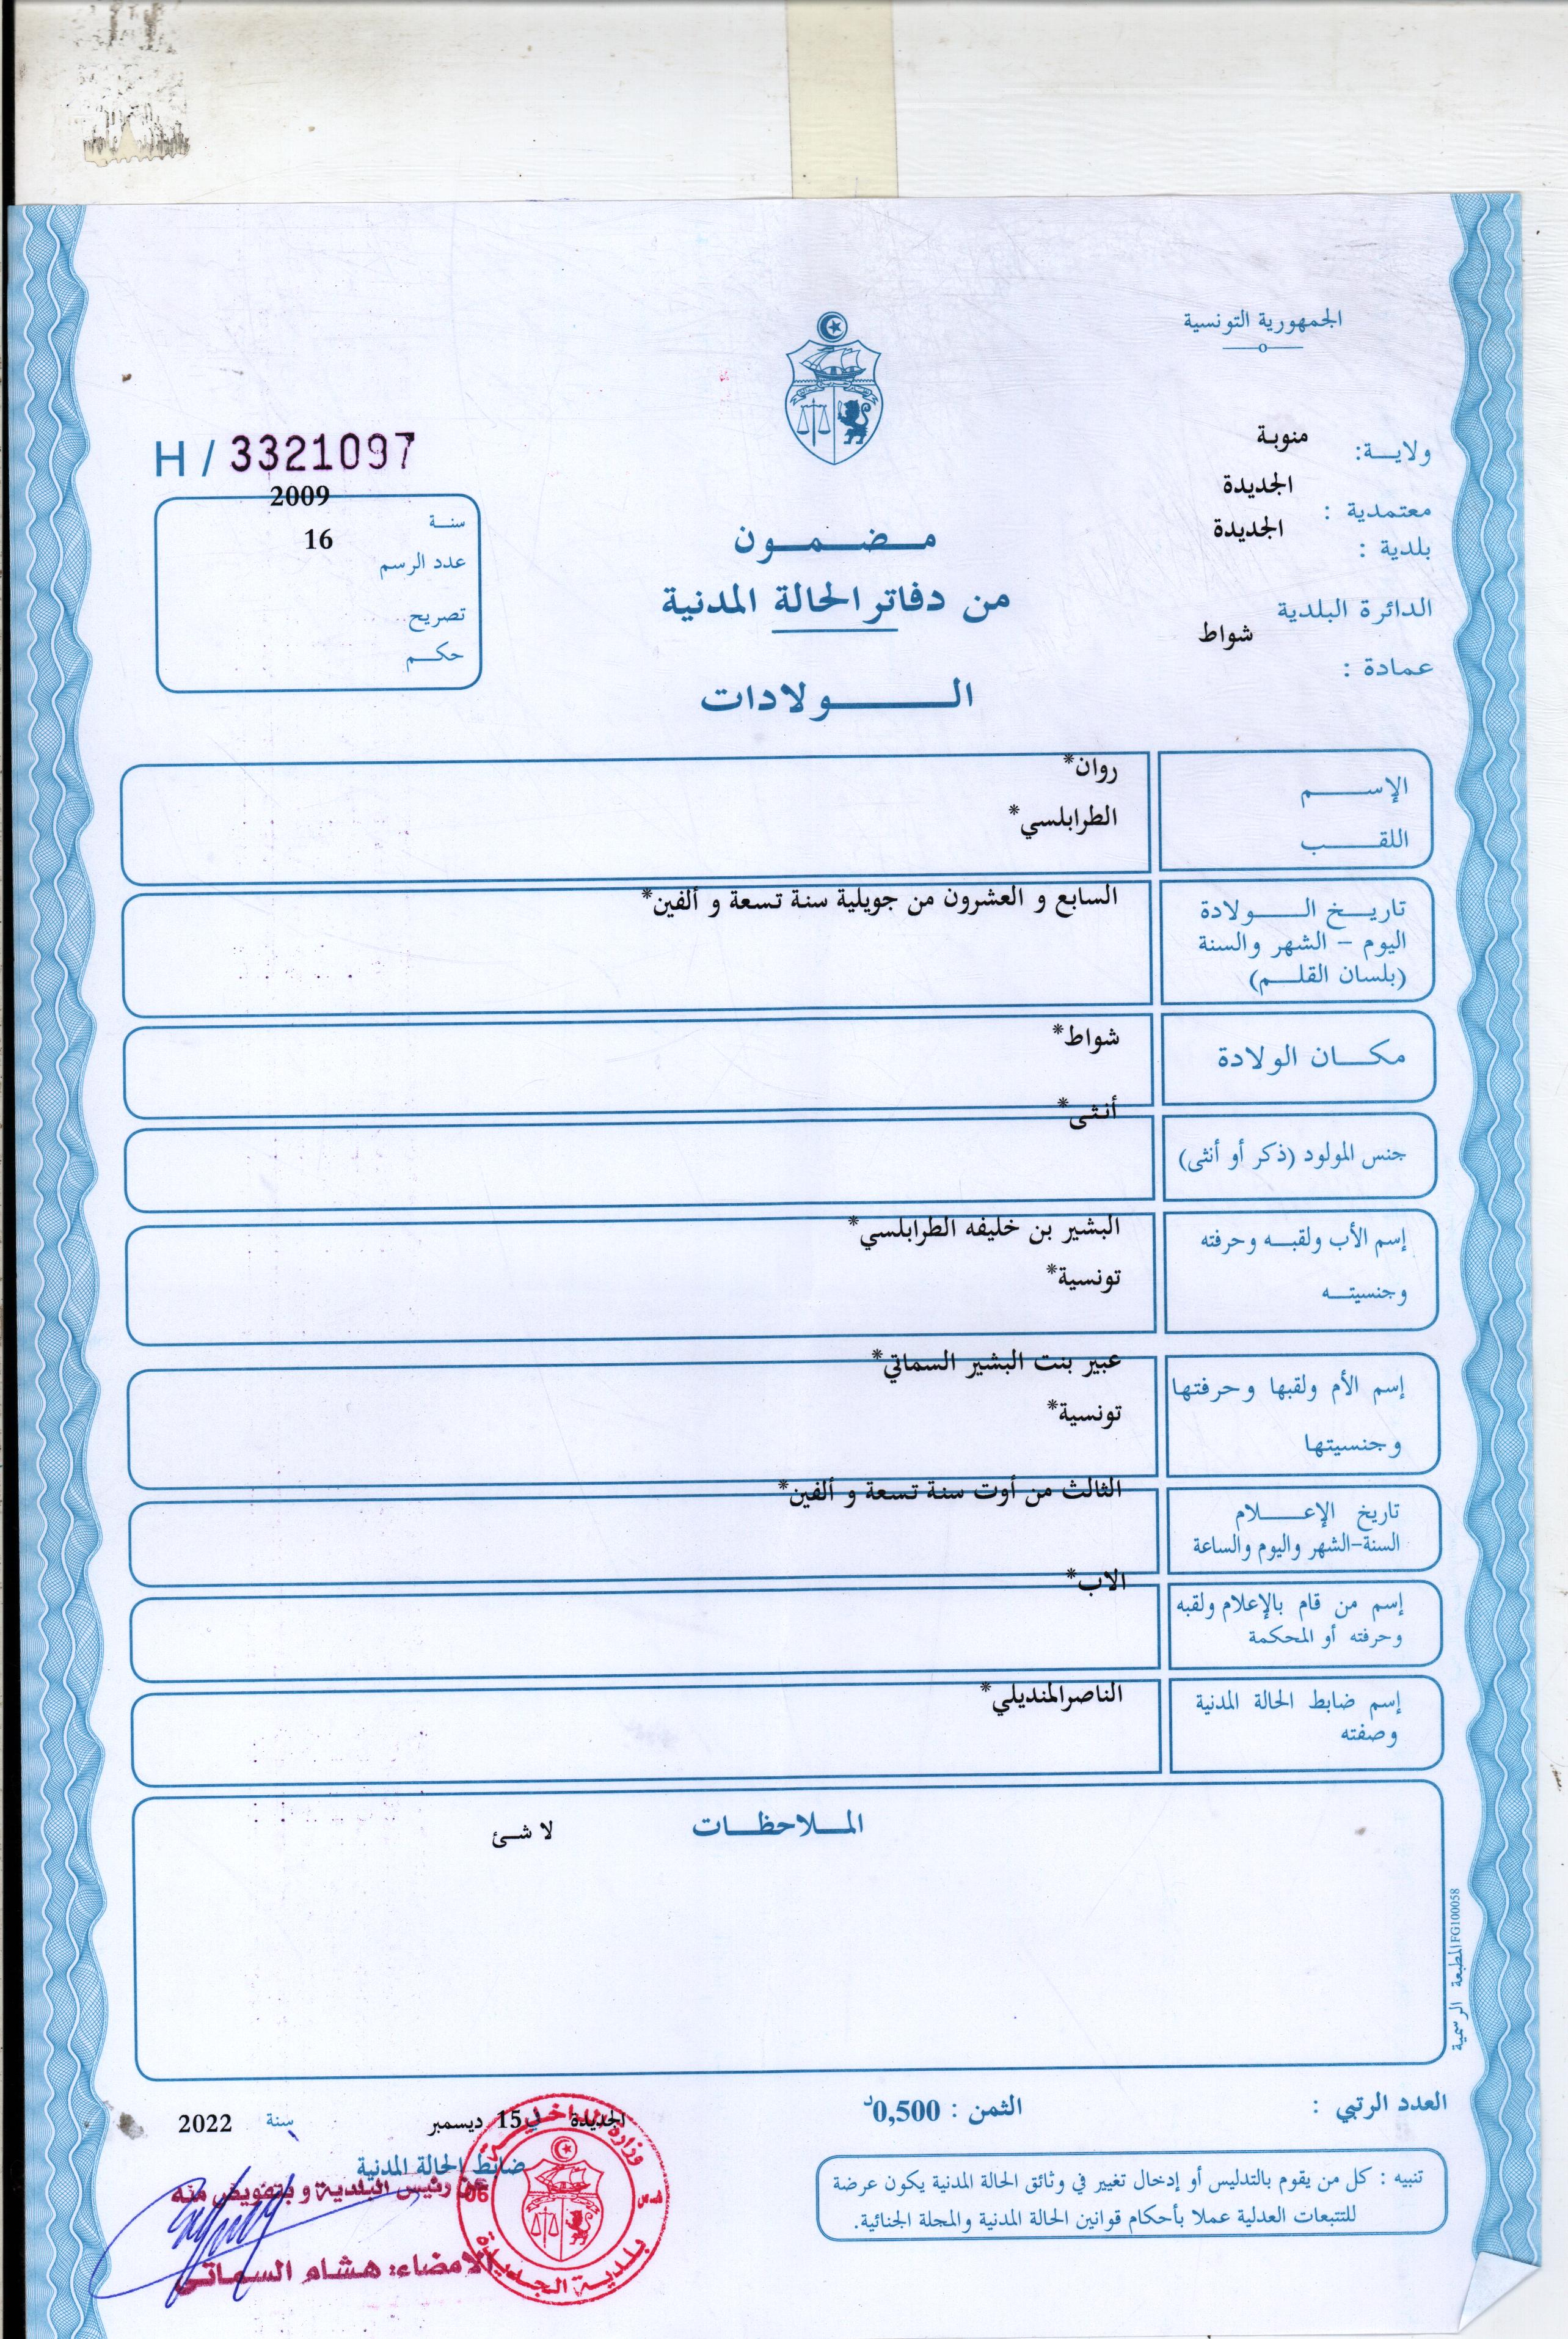 الجمهورية التونسية
ولايـــة: منوبة
معتمدية : الجديدة
بلدية : الجديدة
الدائرة البلدية
شواط
عمادة :
مـضـمـون
من دفاتر الحالة المدنية
الـــولادات
H / 3321097
2009
سنـة
16
عدد الرسم
تصريح
حكـم
الإســـم
روان*
اللقـــب
الطرابلسي*
تاريـخ الـــولادة
اليوم – الشهر والسنة
(بلسان القلـم)
السابع و العشرون من جويلية سنة تسعة و ألفين*
مكـــان الولادة
شواط*
جنس المولود (ذكر أو أنثى)
أنثى*
إسم الأب ولقبـه وحرفته
وجنسيتـه
البشير بن خليفه الطرابلسي*
تونسية*
إسم الأم ولقبها وحرفتها
وجنسيتها
عبير بنت البشير السماتي*
تونسية*
تاريخ الإعـــلام
السنة-الشهر واليوم والساعة
الثالث من أوت سنة تسعة و ألفين*
إسم من قام بالإعلام ولقبه
وحرفته أو المحكمة
الاب*
إسم ضابط الحالة المدنية
وصفته
الناصرالمنديلي*
المـلاحظـات
لا شئ
المطبعة الرسمية FG100058
العدد الرتبي :
الثمن : 0,500د
الجديدة في 15 ديسمبر سنة 2022
ضابط الحالة المدنية
عن رئيس البلدية و بتفويض منه
الامضاء: هشام السماتي
وزارة الداخلية
06
بلدية الجديدة
تنبيه : كل من يقوم بالتدليس أو إدخال تغيير في وثائق الحالة المدنية يكون عرضة
للتتبعات العدلية عملا بأحكام قوانين الحالة المدنية والمجلة الجنائية.